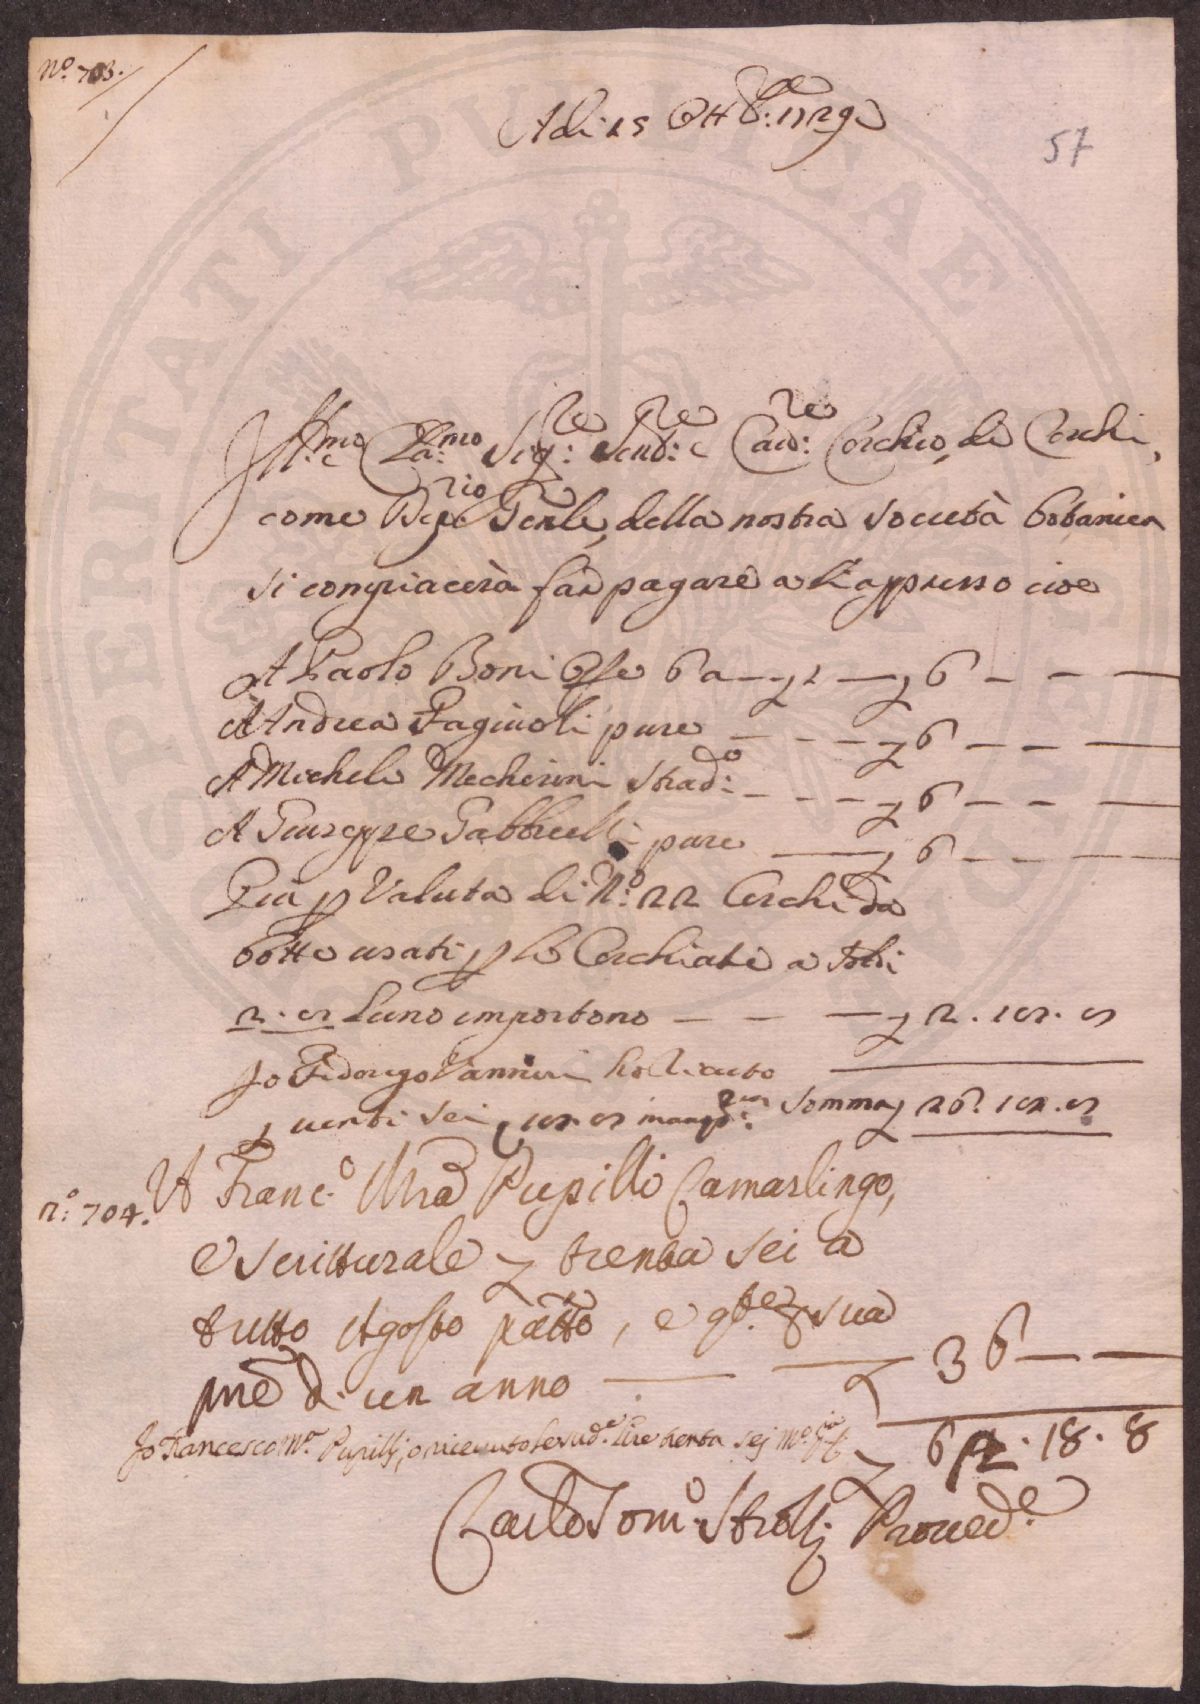 N.º 703.
Adi 25 Ott.bre 1729
57
Ill.mo e Cla.mo Sig.re Send.re e Cav.re Cerchio, de Cerchi,
come Dep.rio Genle, della nostra società botanica
si compiacerà far pagare a li appresso cioe
A Paolo Boni Ope 6 a — £ 1 — £ 6 — — —
A Andrea Fagiuoli pure — — — £ 6 — — —
A Michele Mecherini strad.do — — — £ 6 — — —
A Giuseppe Gabbrielli pure — £ 6 — — —
Più p Valuta di N.º 22 Cerchi da
botte usati p le Cerchiate a soldi
2. 4 l'uno importono — — — £ 2. 18. 8
Io Fidorigo Vannini ho riceuto
£ uenti sei, 18. 8 Somma £ 26. 18. 8
n.º 704. A Franc.º Mra Pupilli Camarlingo,
e scritturale £ trenta sei a
tutto Agosto patto, e q.te p sua
pne di un anno — — £ 36 — —
Io Francesco M.a Pupillj, o riceuuto le sud.e lire trenta sej
£ 62. 18. 8
Carlo Tom.º Strozzj Proued.e
PUBLICAE